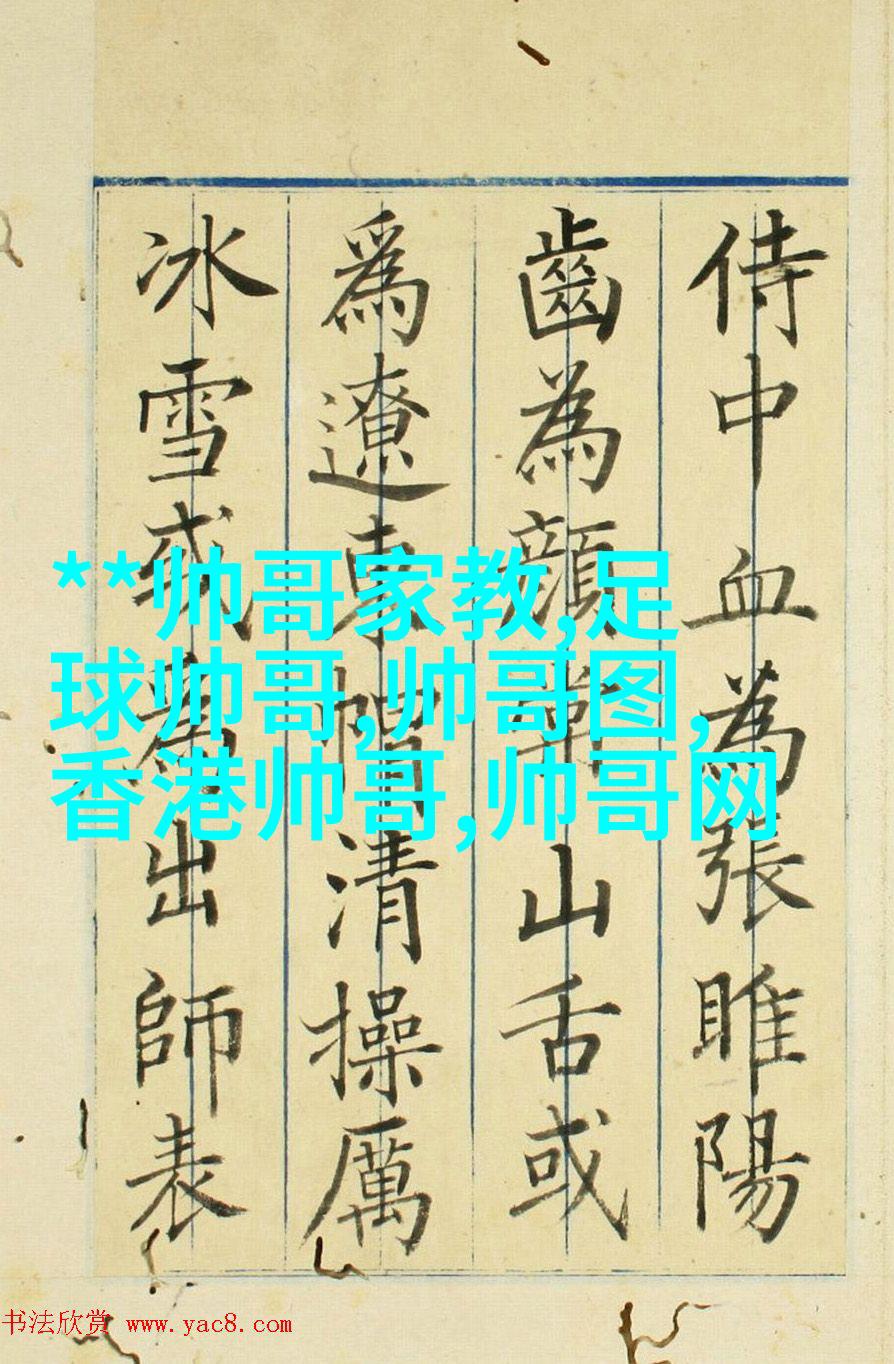 侍中血為張睢陽
齒為顏常山舌或
爲遼東帽清操厲
冰雪或為出師表
**帅哥家教,足
球帅哥,帅哥图,
香港帅哥,帅哥网
书法欣赏 www.yac8.com